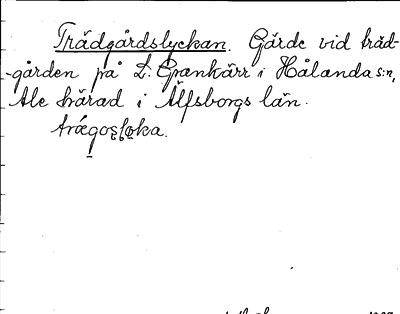 Trädgårdslyckan. Gärde vid träd-
-gården på L. Grankärr i Hålanda s:n,
Ale härad i Älfsborgs län.